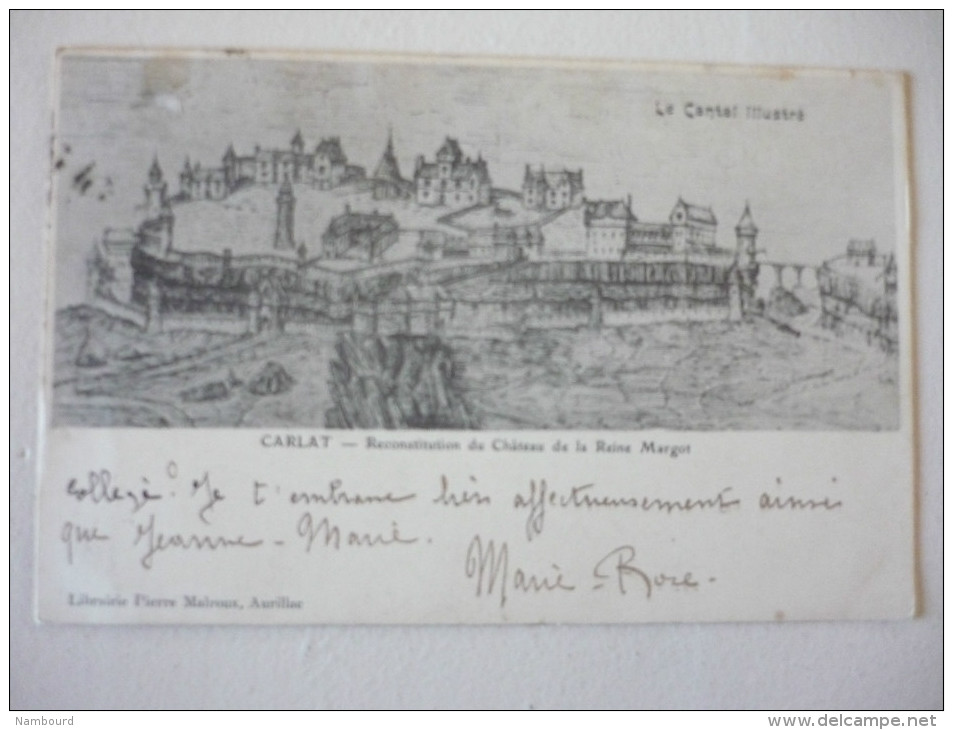 Le Cantal Illustré
CARLAT — Reconstitution du Château de la Reine Margot
college. Je t'embrasse bien affectueusement ainsi
que Jeanne-Marie.
Marie-Rose.
Librairie Pierre Malroux, Aurillac
Nambourd
www.delcampe.net